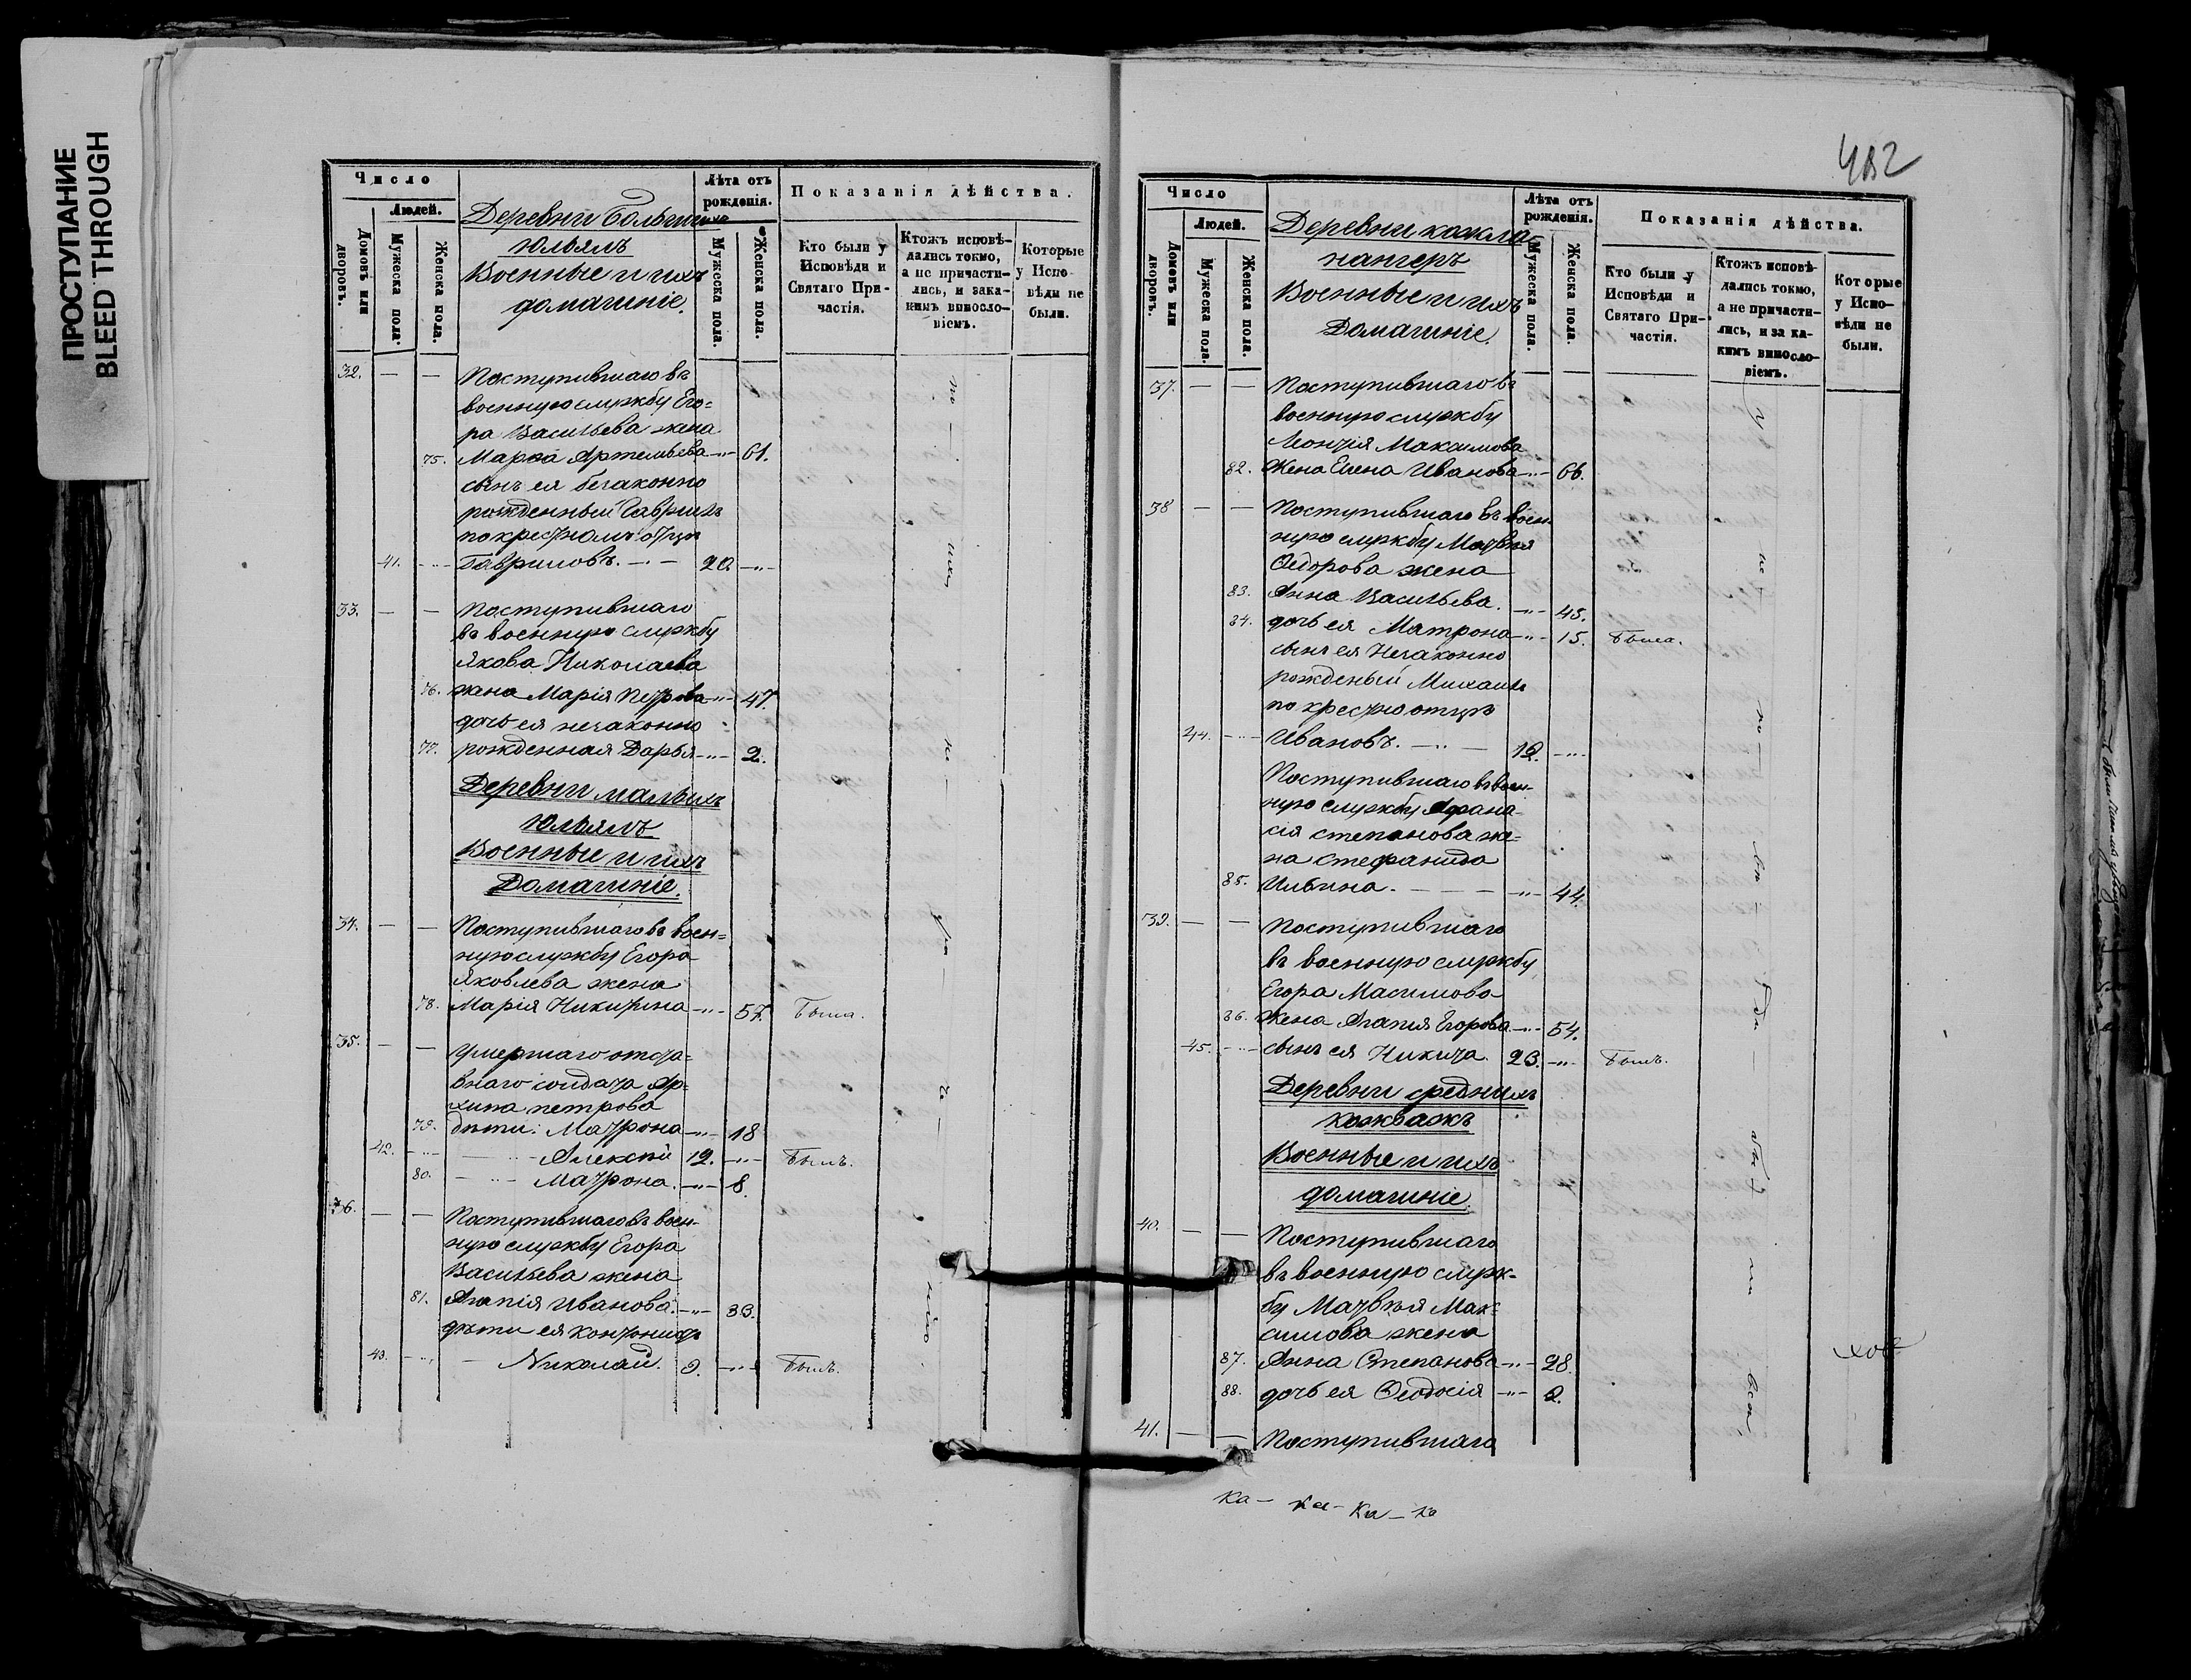 ПРОСТУПАНИЕ
BLEED THROUGH
Число
Людей.
Домовъ или дворовъ.
Мужеска пола.
Женска пола.
Деревни Большихъ
Юльялъ
Военные и ихъ
домашніе.
Лѣта отъ рожденія.
Мужеска пола.
Женска пола.
Показанія дѣйства.
Кто были у Исповѣди и Святаго Причастія.
Ктожъ исповѣдались токмо, а не причастились, и за какимъ винословіемъ.
Которые у Исповѣди не были.
32. — — Поступившаго въ
военную службу Его=
ра Васильева жена
75. Марѳа Артемьева -"- 61.
сынъ ея безаконно
рожденный Гавриилъ
по крестномъ отцу
41. -"- Гавриловъ. -"- 20 -"-
33. — — Поступившаго
въ военную службу
Якова Николаева
76. жена Марія Петрова -"- 47.
дочь ея незаконно
77. рожденная Дарья -"- 2.
Деревни малыхъ
Юльялъ
Военные и ихъ
Домашніе.
34. — — Поступившаго въ воен=
ную службу Егора
Яковлева жена
78. Марія Никитина -"- 57. Была.
35. — — Умершаго отста=
внаго солдата Ар=
хипа петрова
79. дѣти: Матрона -"- 18
42. -"- — -"- Алексѣй 12. -"- Былъ.
80. — -"- Матрона. -"- 8.
36. — — Поступившаго въ воен-
ную службу Егора
Васильева жена
81. Агапія Иванова. -"- 33.
дѣти ея
43. -"- — Николай. 9. -"- Былъ.
482
Число
Людей.
Домовъ или дворовъ.
Мужеска пола.
Женска пола.
Деревни кожла=
нангеръ
Военные и ихъ
Домашніе.
Лѣта отъ рожденія.
Мужеска пола.
Женска пола.
Показанія дѣйства.
Кто были у Исповѣди и Святаго Причастія.
Ктожъ исповѣдались токмо, а не причастились, и за какимъ винословіемъ.
Которые у Исповѣди не были.
37. — — Поступившаго въ
военную службу
Леонтія Максимова
82. Жена Елена Иванова -"- 66.
38 — — Поступившаго въ воен-
ную службу Матвѣя
Ѳедорова жена
83. Анна Васильева. -"- 45.
84. дочь ея Матрона -"- 15. Была.
сынъ ея Незаконно
рожденый Михаилъ
по крестно отцу
44. -"- Ивановъ. -"- — 12. -"-
Поступившаго въ воен-
ную службу Афана-
сія степанова же-
на стефанида
85. Ильина. — — — -"- 44.
39. — — Поступившаго
въ военную службу
Егора Масимова
86. Жена Агапія Егорова. -"- 54.
45. -"- сынъ ея Никита. 23. -"- Былъ.
Деревни среднихъ
кожважъ
Военные и ихъ
домашніе.
40. — — Поступившаго
въ военную служ-
бу Матвѣя Мак-
симова жена
87. Анна Степанова -"- 28.
88. дочь ея Ѳеодосія -"- 2.
41. — — Поступившаго
ка- ка- ка- ка